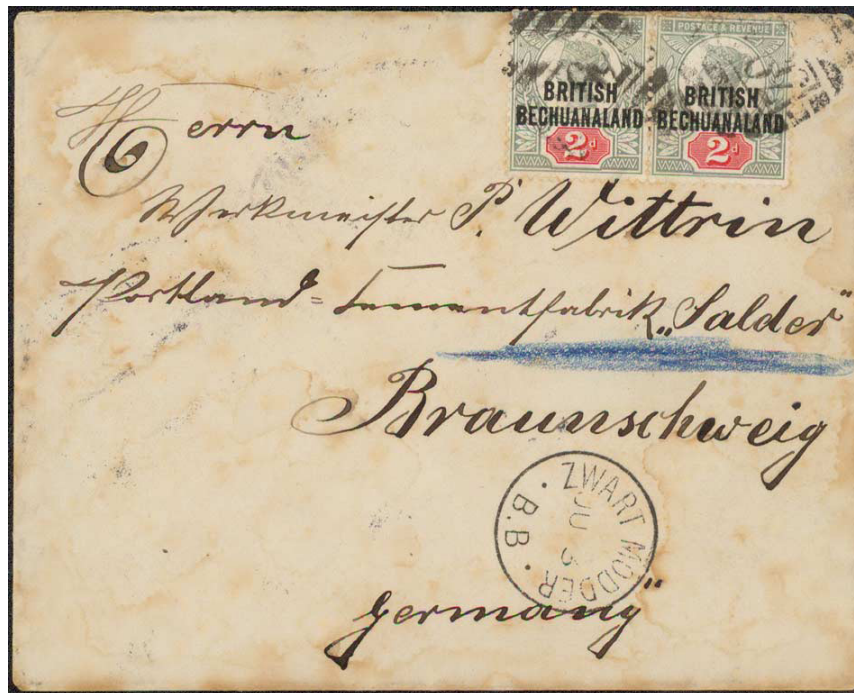 POSTAGE & REVENUE
BRITISH BECHUANALAND
2d
BRITISH BECHUANALAND
2d
Herrn
Werkmeister P. Wittrin
Portland=Cementfabrik „Salder"
Braunschweig
ZWART MODDER
JU 3
B.B.
Germany"